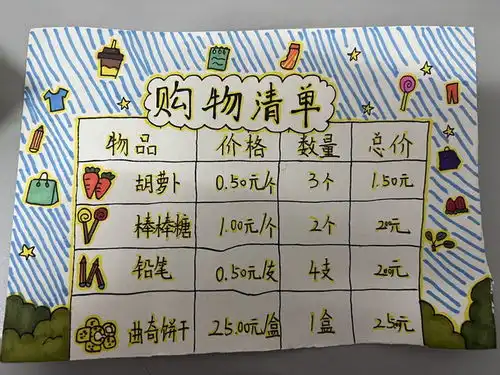 购物清单
物品 价格 数量 总价
胡萝卜 0.50元/个 3个 1.50元
棒棒糖 1.00元/个 2个 2.00元
铅笔 0.50元/支 4支 2.00元
曲奇饼干 25.00元/盒 1盒 25元